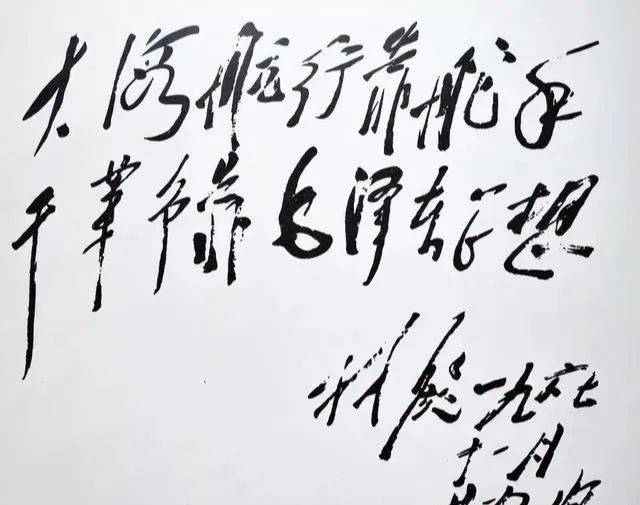 大海航行靠舵手
干革命靠毛泽东思想
林彪一九六七
十一月